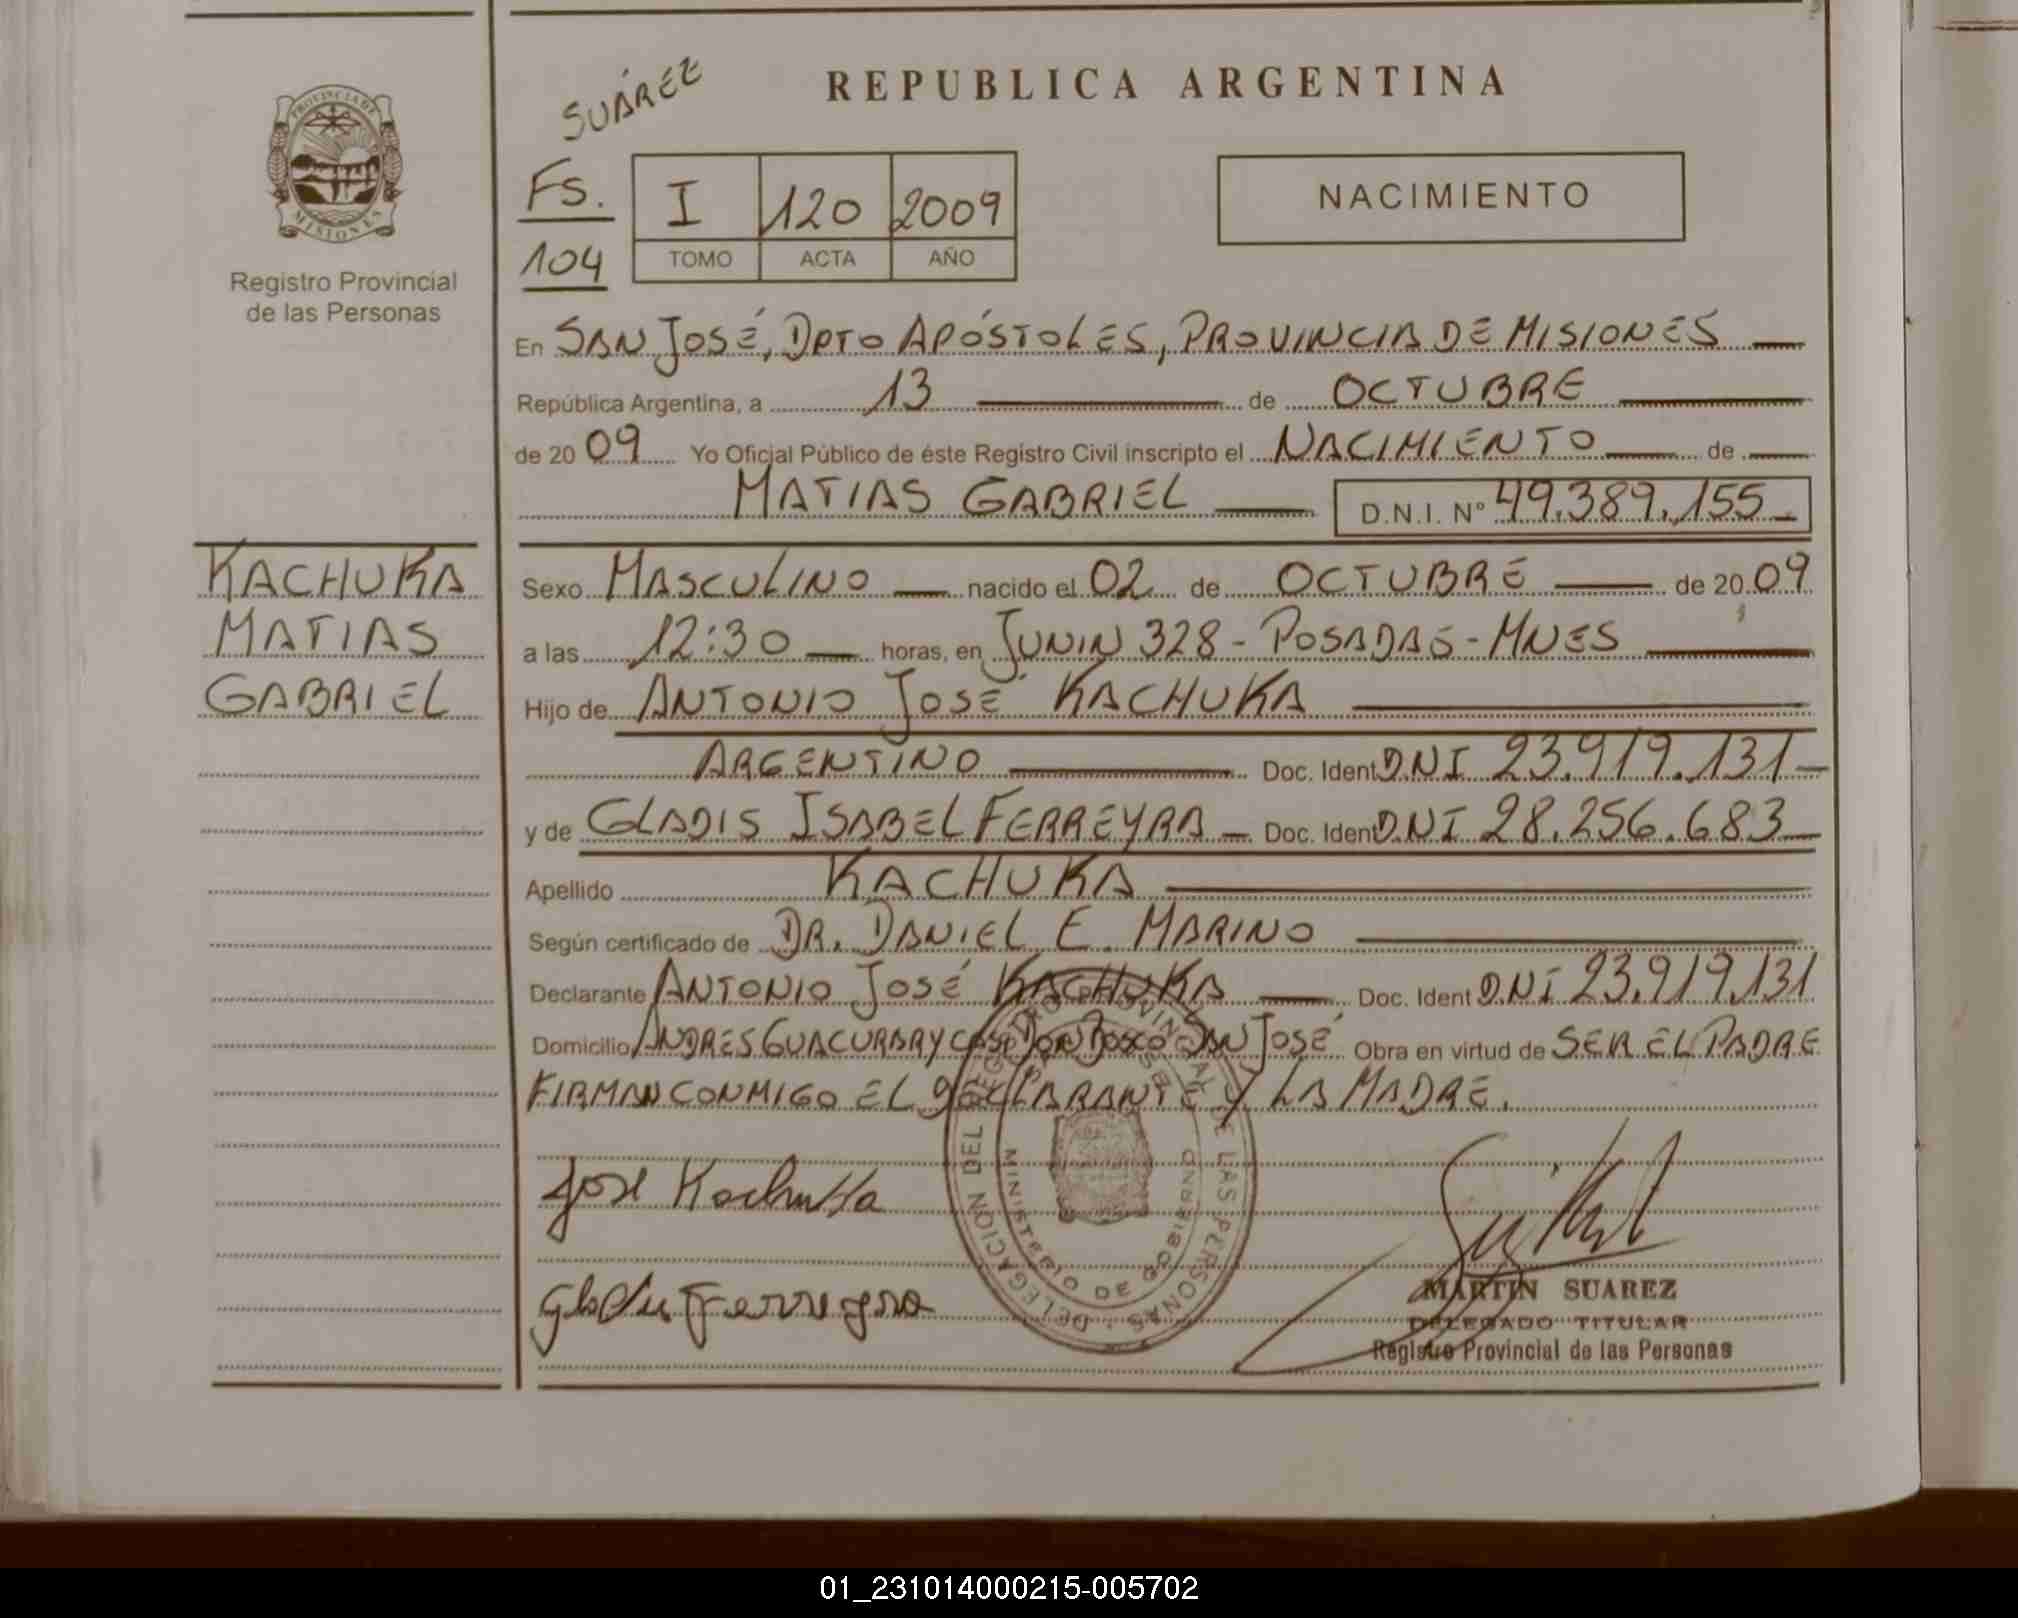 REPUBLICA ARGENTINA
SUÁREZ
PROVINCIA DE MISIONES
Registro Provincial
de las Personas
FS.
104
I 120 2009
TOMO ACTA AÑO
NACIMIENTO
En SAN JOSÉ, DPTO APÓSTOLES, PROVINCIA DE MISIONES
República Argentina, a 13 de OCTUBRE
de 2009 Yo Oficial Público de éste Registro Civil inscripto el NACIMIENTO de
MATIAS GABRIEL D.N.I. N° 49.389.155
KACHUKA
MATIAS
GABRIEL
Sexo MASCULINO nacido el 02 de OCTUBRE de 2009
a las 12:30 horas, en JUNIN 328 - POSADAS - MNES
Hijo de ANTONIO JOSÉ KACHUKA
ARGENTINO Doc. Ident DNI 23.919.131
y de GLADIS ISABEL FERREYRA Doc. Ident DNI 28.256.683
Apellido KACHUKA
Según certificado de DR. DANIEL E. MARINO
Declarante ANTONIO JOSÉ KACHUKA Doc. Ident DNI 23.919.131
Domicilio ANDRES GUACURARY CASI DON BOSCO SAN JOSÉ Obra en virtud de SER EL PADRE
FIRMAN CONMIGO EL DECLARANTE Y LA MADRE.
José Kachuka
Gladis Ferreyra
DELEGACION DEL REGISTRO PROVINCIAL DE LAS PERSONAS
SAN JOSE
MINISTERIO DE GOBIERNO
MARTIN SUAREZ
DELEGADO TITULAR
Registro Provincial de las Personas
01_231014000215-005702